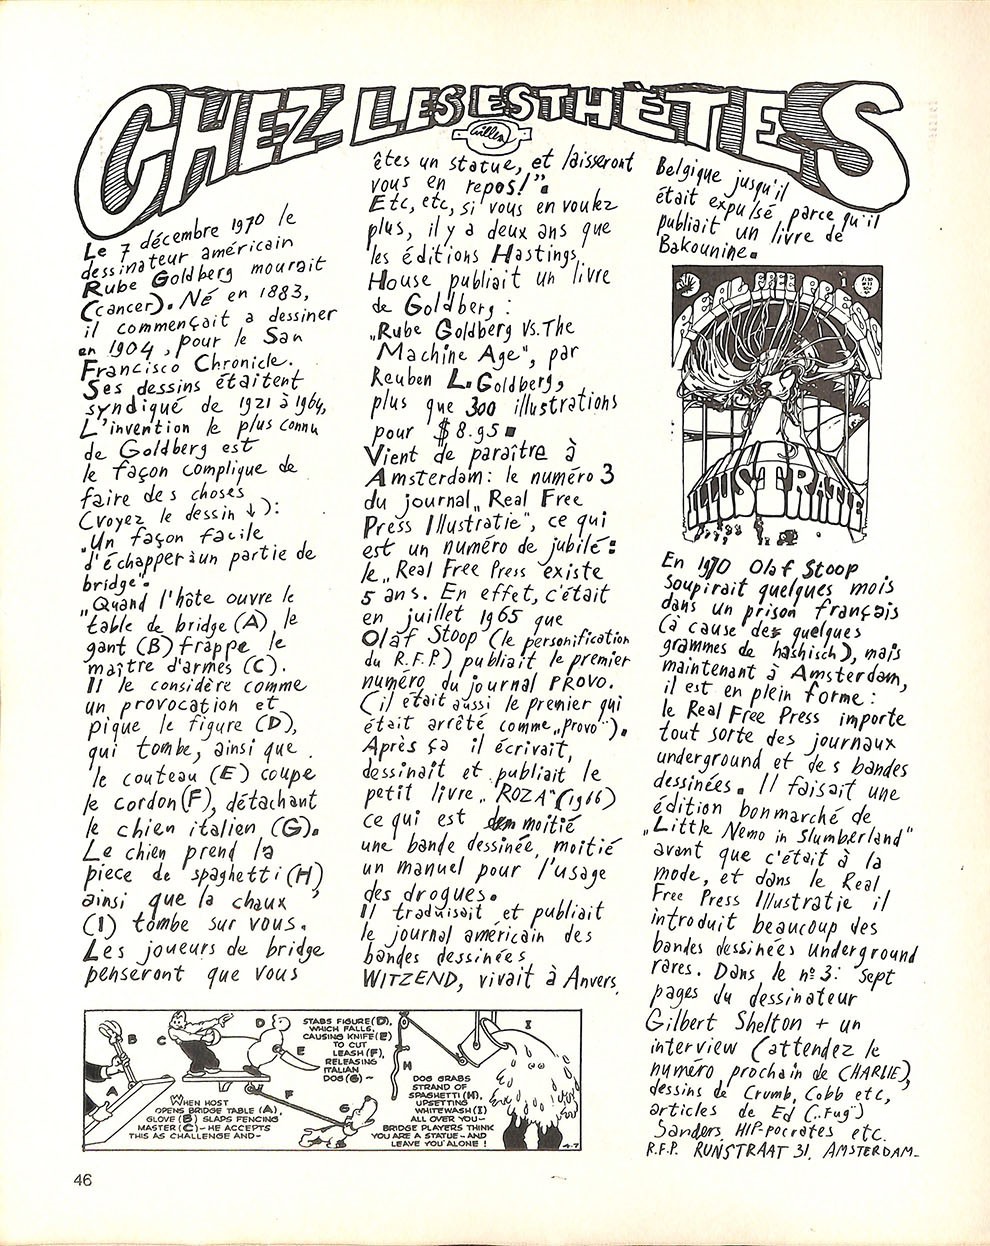 CHEZ LES ESTHÈTES
Willem
Le 7 décembre 1970 le
dessinateur américain
Rube Goldberg mourait
(cancer). Né en 1883,
il commençait a dessiner
en 1904, pour le San
Francisco Chronicle.
Ses dessins étaitent
syndiqué de 1921 à 1964,
L'invention le plus connu
de Goldberg est
le façon complique de
faire des choses
(voyez le dessin ↓):
„Un façon facile
d'échapper à un partie de
bridge".
„Quand l'hôte ouvre le
table de bridge (A) le
gant (B) frappe le
maître d'armes (C).
Il le considère comme
un provocation et
pique le figure (D),
qui tombe, ainsi que
le couteau (E) coupe
le cordon (F), détachant
le chien italien (G).
Le chien prend la
piece de spaghetti (H)
ainsi que la chaux
(I) tombe sur vous.
Les joueurs de bridge
penseront que vous
êtes un statue, et laisseront
vous en repos!".
Etc, etc, si vous en voulez
plus, il y a deux ans que
les éditions Hastings
House publiait un livre
de Goldberg :
„Rube Goldberg Vs. The
Machine Age", par
Reuben L. Goldberg,
plus que 300 illustrations
pour $ 8.95 ■
Vient de paraître à
Amsterdam: le numéro 3
du journal „Real Free
Press Illustratie", ce qui
est un numéro de jubilé:
le „Real Free Press existe
5 ans. En effet, c'était
en juillet 1965 que
Olaf Stoop (le personification
du R.F.P.) publiait le premier
numéro du journal PROVO.
(il etait aussi le premier qui
était arrêté comme „provo").
Après ça il écrivait,
dessinait et publiait le
petit livre „ROZA" (1966)
ce qui est moitié
une bande dessinée, moitié
un manuel pour l'usage
des drogues.
Il traduisait et publiait
le journal américain des
bandes dessinées
WITZEND, vivait à Anvers,
Belgique jusqu'il
était expulsé, parce qu'il
publiait un livre de
Bakounine.
REAL FREE PRESS
ILLUSTRATIE
En 1970 Olaf Stoop
soupirait quelques mois
dans un prison français
(à cause des quelques
grammes de hashisch), mais
maintenant à Amsterdam,
il est en plein forme:
le Real Free Press importe
tout sorte des journaux
underground et des bandes
dessinées. Il faisait une
édition bonmarché de
„Little Nemo in Slumberland"
avant que c'était à la
mode, et dans le Real
Free Press Illustratie il
introduit beaucoup des
bandes dessinées underground
rares. Dans le nº 3: sept
pages du dessinateur
Gilbert Shelton + un
interview (attendez le
numéro prochain de CHARLIE),
dessins de Crumb, Cobb etc,
articles de Ed („Fug")
Sanders, HIP-pocrates etc.
R.F.P. RUNSTRAAT 31, AMSTERDAM-
A
B
C
WHEN HOST
OPENS BRIDGE TABLE (A),
GLOVE (B) SLAPS FENCING
MASTER (C)-HE ACCEPTS
THIS AS CHALLENGE AND-
D
E
F
G
STABS FIGURE (D),
WHICH FALLS,
CAUSING KNIFE (E)
TO CUT
LEASH (F),
RELEASING
ITALIAN
DOG (G) ~
H
I
DOG GRABS
STRAND OF
SPAGHETTI (H),
UPSETTING
WHITEWASH (I)
ALL OVER YOU-
BRIDGE PLAYERS THINK
YOU ARE A STATUE-AND
LEAVE YOU ALONE!
4-7
46